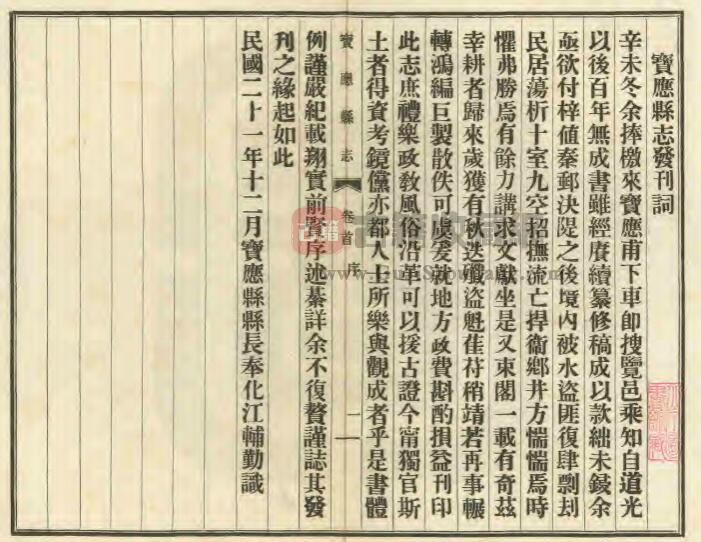 寶應縣志發刊詞
辛未冬余捧檄來寶應甫下車卽搜覽邑乘知自道光
以後百年無成書雖經賡續纂修稿成以款絀未鋟余
亟欲付梓値秦郵決隄之後境內被水盜匪復肆剽刦
民居蕩析十室九空招撫流亡捍衞鄉井方惴惴焉時
懼弗勝焉有餘力講求文獻坐是又束閣一載有奇茲
幸耕者歸來歲獲有秋迭殲盜魁萑苻稍靖若再事輾
轉鴻編巨製散佚可虞爰就地方政費斟酌損益刊印
此志庶禮樂政敎風俗沿革可以援古證今甯獨官斯
土者得資考鏡儻亦都人士所樂與觀成者乎是書體
寶應縣志
卷首 序
一
例謹嚴紀載翔實前賢序述綦詳余不復贅謹誌其發
刊之緣起如此
民國二十一年十二月寶應縣縣長奉化江輔勤識